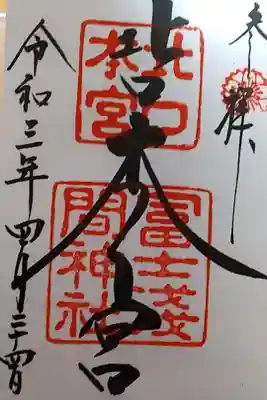 奉拝
北口本宮
北口
本宮
冨士浅
間神社
令和三年四月二十四日